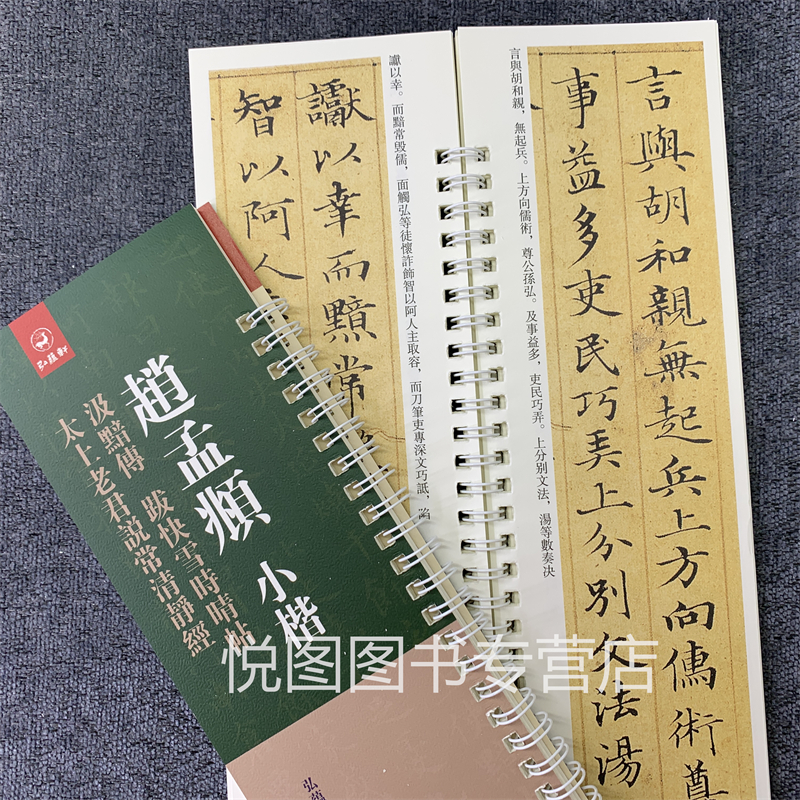 言與胡和親，無起兵。上方向儒術，尊公孫弘。及事益多，吏民巧弄。上分別文法，湯等數奏决
言與胡和親無起兵上方向儒術尊
事益多吏民巧弄上分別文法湯
讞以幸。而黯常毀儒，面觸弘等徒懷詐飾智以阿人主取容，而刀筆吏專深文巧詆，陷
讞以幸而黯常
智以阿人
趙孟頫 小楷
汲黯傳 跋快雪時晴帖
太上老君説常清靜經
弘
悦图图书专营店